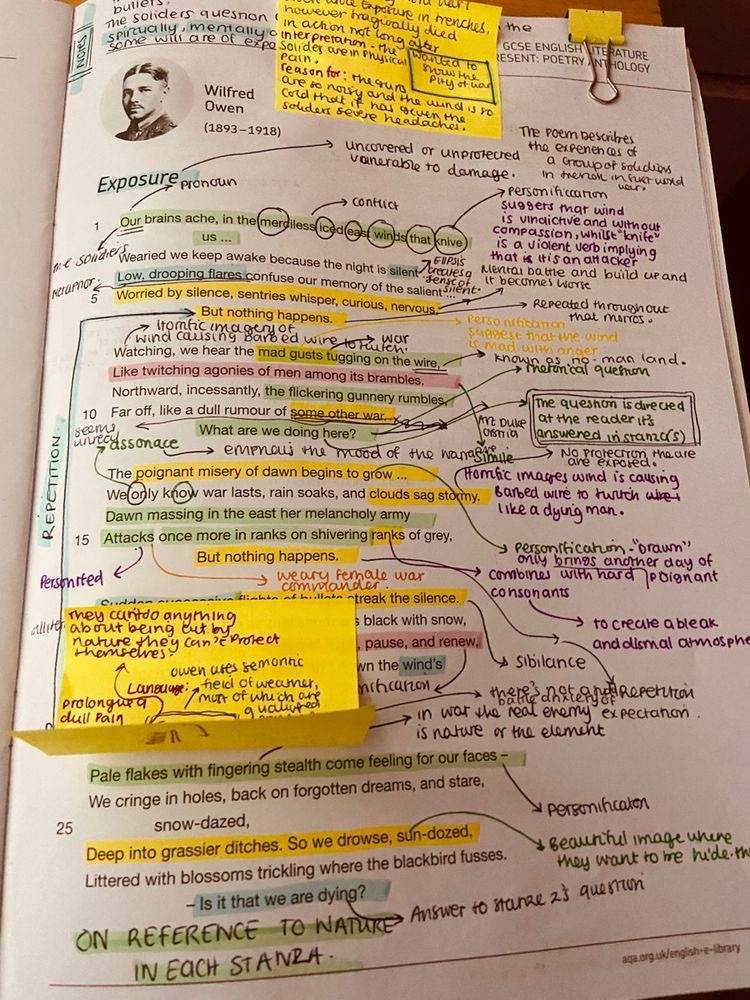 bullets.
The soliders question
spiritually, mentally
some will are of expo
NOTES
exposure in trenches,
however tragically died
in action not long after
interpretation - the
soliders are in physical
pain.
wanted to
show the
pity of war
reason for: the guns
are so noisy and the wind is so
cold that it has given the
soliders severe headaches.
the
GCSE ENGLISH LITERATURE
RESENT: POETRY ANTHOLOGY
Wilfred
Owen
(1893–1918)
uncovered or unprotected
vunerable to damage.
The poem describes
the experiences of
a group of soliders
in trench in first world
war.
Exposure
pronoun
conflict
personification
suggests that wind
is vindictive and without
compassion, whilst "knife"
is a violent verb implying
that is it is an attacker
1 Our brains ache, in the merciless iced east winds that knive
us ...
the soliders
Wearied we keep awake because the night is silent ...
Ellipsis
creates a
sense of
silent.
Mental battle and build up and
it becomes worse
metaphor
Low, drooping flares confuse our memory of the salient ...
5 Worried by silence, sentries whisper, curious, nervous,
But nothing happens.
Repeated throughout
Horrific imagery of
wind causing barbed wire to
war
Personification
suggest that the wind
is mad with anger.
Watching, we hear the mad gusts tugging on the wire,
known as no-man land.
Like twitching agonies of men among its brambles.
rhetorical question
Northward, incessantly, the flickering gunnery rumbles,
10 Far off, like a dull rumour of some other war.
seems
unreal
What are we doing here?
The question is directed
at the reader it's
answered in stanza(s)
REPETITION
assonace
emphais the mood of the narrative.
Simile
No protection the are
are exposed.
The poignant misery of dawn begins to grow ...
Horrific images wind is causing
barbed wire to twitch
like a dying man.
We only know war lasts, rain soaks, and clouds sag stormy.
Dawn massing in the east her melancholy army
15 Attacks once more in ranks on shivering ranks of grey,
But nothing happens.
Personification - "Drawn"
only brings another day of
combines with hard poignant
consonants
Personifed
weary female war
commander.
to create a bleak
and dismal atmosphe
Sudden successive flights of bullets streak the silence.
allite
They can't do anything
about being cut by
nature they can't protect
themselves.
owen uses semontic
Language: field of weather,
most of which are
prolongued
dull pain
s black with snow,
, pause, and renew,
wn the wind's
nification
sibilance
Repetition
in war the real enemy expectation.
is nature or the element
Pale flakes with fingering stealth come feeling for our faces –
We cringe in holes, back on forgotten dreams, and stare,
25 snow-dazed,
Personificaton
Deep into grassier ditches. So we drowse, sun-dozed,
Littered with blossoms trickling where the blackbird fusses.
Beautiful image where
they want to be hide.
– Is it that we are dying?
Answer to stanze 2's question
ON REFERENCE TO NATURE
IN EACH STANZA.
aqa.org.uk/english-e-library